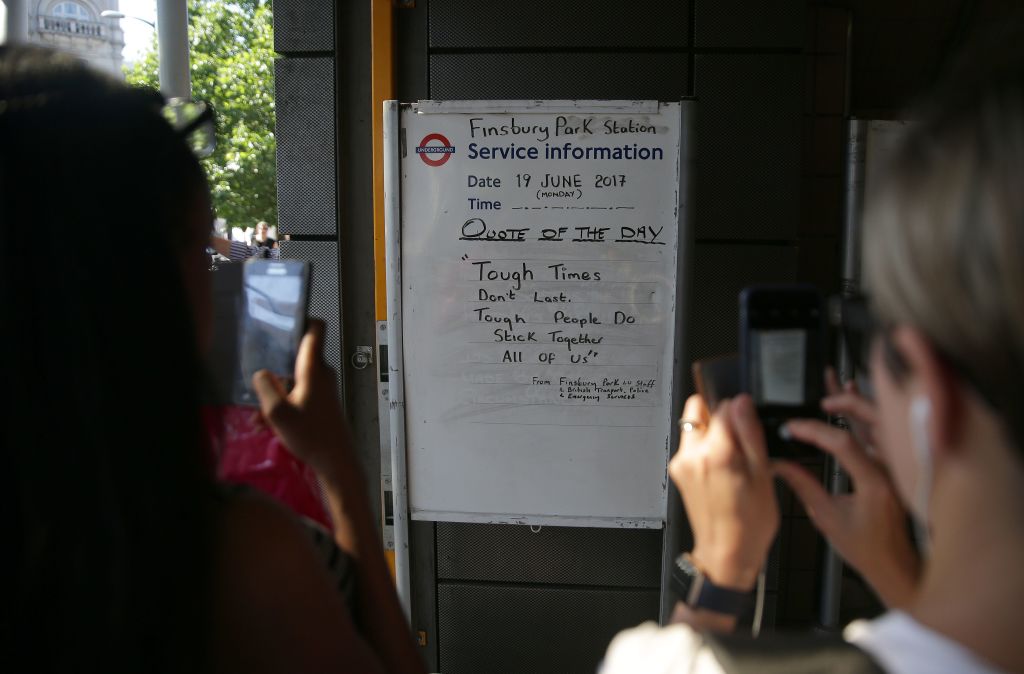 Finsbury Park Station
UNDERGROUND
Service information
Date 19 JUNE 2017
(MONDAY)
Time
QUOTE OF THE DAY
"Tough Times
Don't Last.
Tough People Do
Stick Together
All of Us"
From Finsbury Park LU Staff
& British Transport Police
& Emergency Services